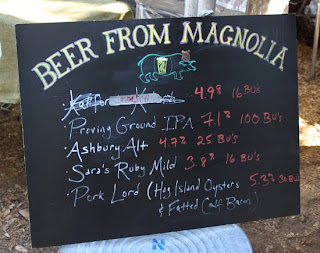 BEER FROM MAGNOLIA
4.9% 16 BU's
• Proving Ground IPA 7.1% 100 BU's
• Ashbury Alt 4.7% 25 BU's
• Sara's Ruby Mild 3.8% 16 BU's
• Pork Lord (Hog Island Oysters 5.3% 30 BU's
& Fatted Calf Bacon)